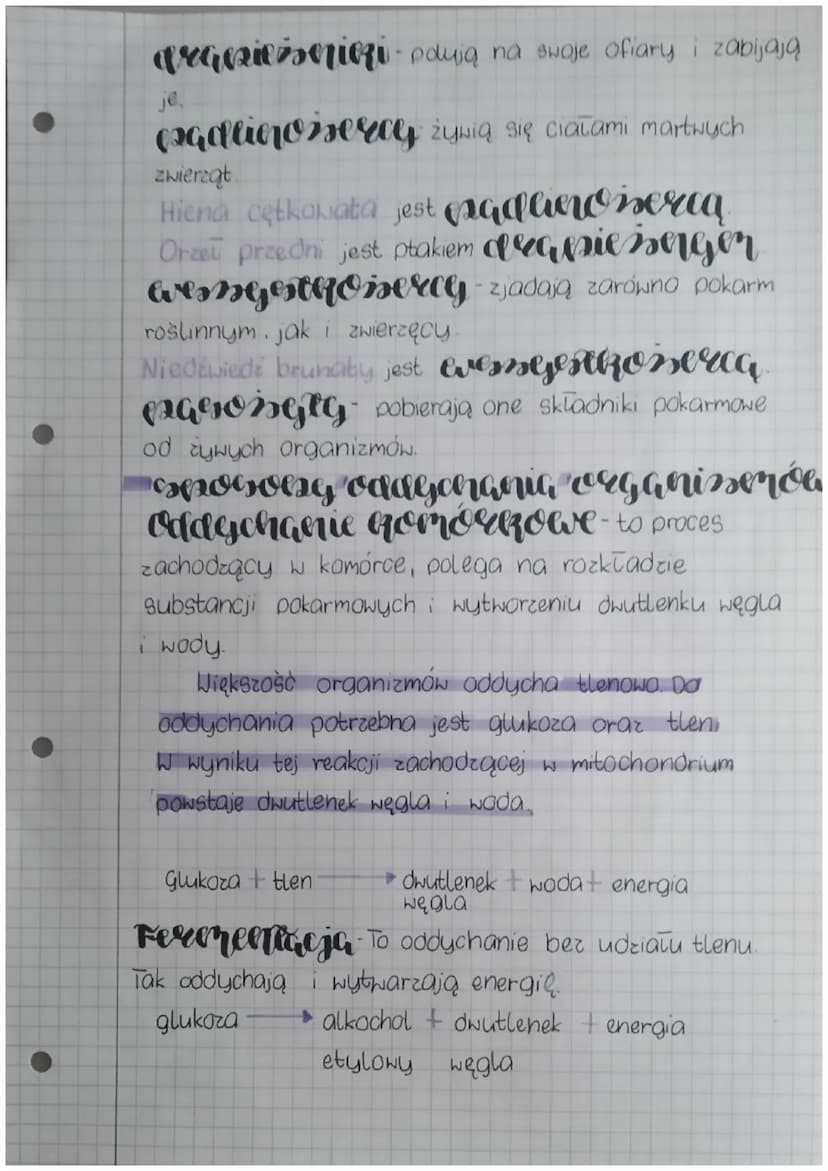 drapieżniki - polują na swoje ofiary i zabijają
je.
padlinożercy żywią się ciałami martwych
zwierząt.
Hiena cętkowata jest padlinożercą.
Orzeł przedni jest ptakiem drapieżnym
wszystkożercy - zjadają zarówno pokarm
roślinnym, jak i zwierzęcy.
Niedźwiedź brunaty jest wszystkożercą.
pasożyty - pobierają one składniki pokarmowe
od żywych organizmów.
sposoby oddychania organizmów
oddychanie komórkowe - to proces
zachodzący w komórce, polega na rozkładzie
substancji pokarmowych i wytworzeniu dwutlenku węgla
i wody.
Większość organizmów oddycha tlenowo. Do
oddychania potrzebna jest glukoza oraz tlen.
W wyniku tej reakcji zachodzącej w mitochondrium
powstaje dwutlenek węgla i woda.
Glukoza + tlen → dwutlenek + woda + energia
węgla
Fermentacja - To oddychanie bez udziału tlenu.
Tak oddychają i wytwarzają energię.
glukoza → alkochol + dwutlenek + energia
etylowy węgla